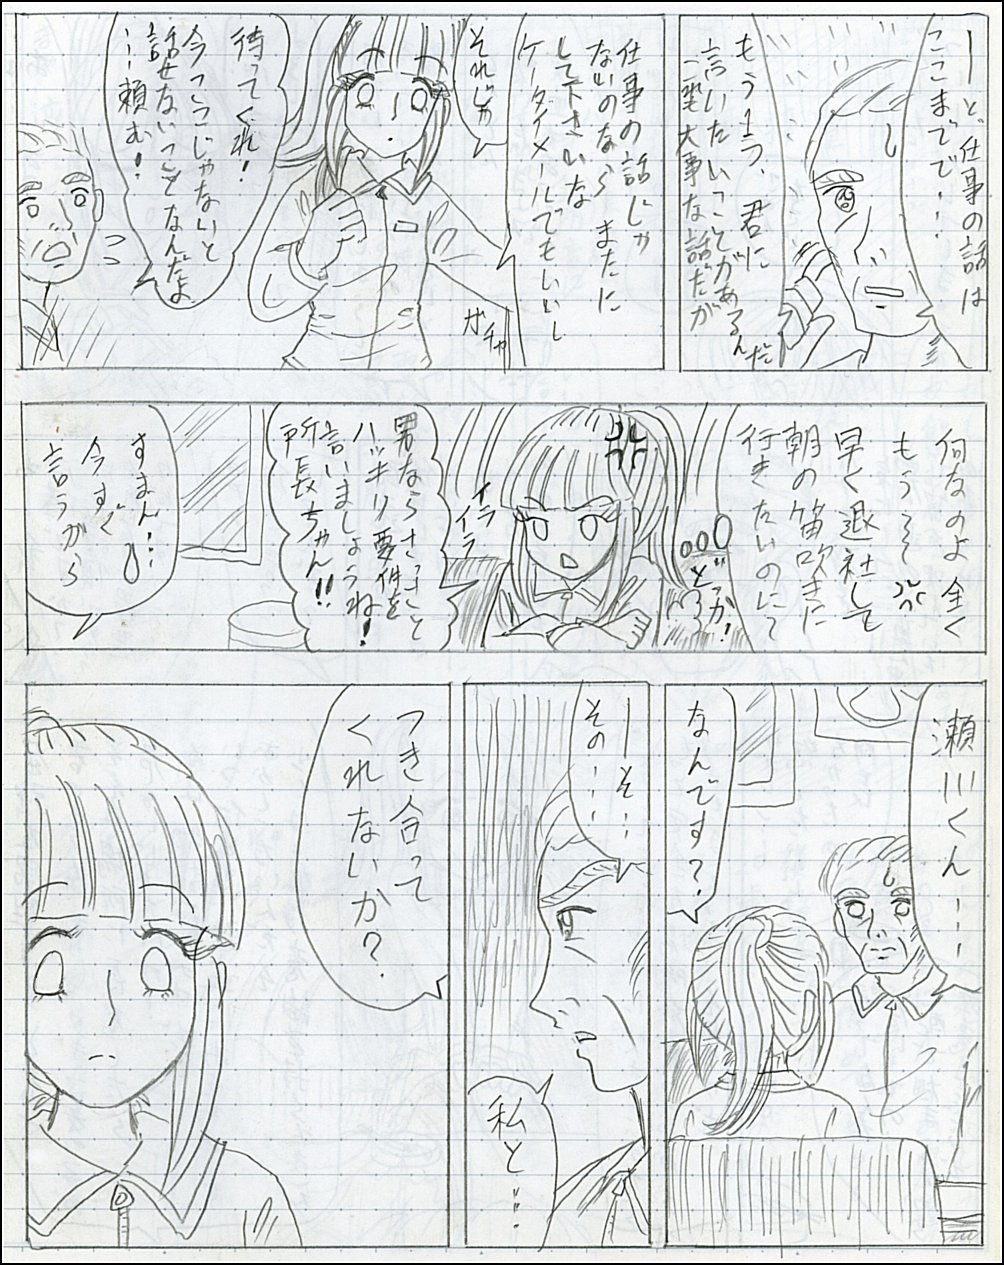 ―――と、仕事の話は
ここまでで…
もう1つ、君に
言いたいことがあるんだ
一番大事な話だが
それじゃ
仕事の話じゃ
ないのなら またに
して下さいな
ケータイメールでもいいし
ガチャ
待ってくれ!
今こうじゃないと
話せないことなんだよ
…頼む!
何なのよ 全く
もう〜〜
早く退社して
朝の笛吹きに
行きたいのにて
どっか!
イライラ
男ならさっさと
ハッキリ要件を
言いましょうね!
所長ちゃん!!
すまん…
今すぐ
言うから
瀬川くん…
なんです?
―そ…
その…
私と…
つき合って
くれないか?